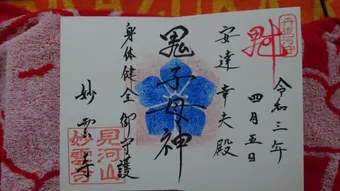 令和三年
四月五日
安達幸夫殿
鬼子母神
身体健全御守護
妙雲寺
見河山
妙雲寺